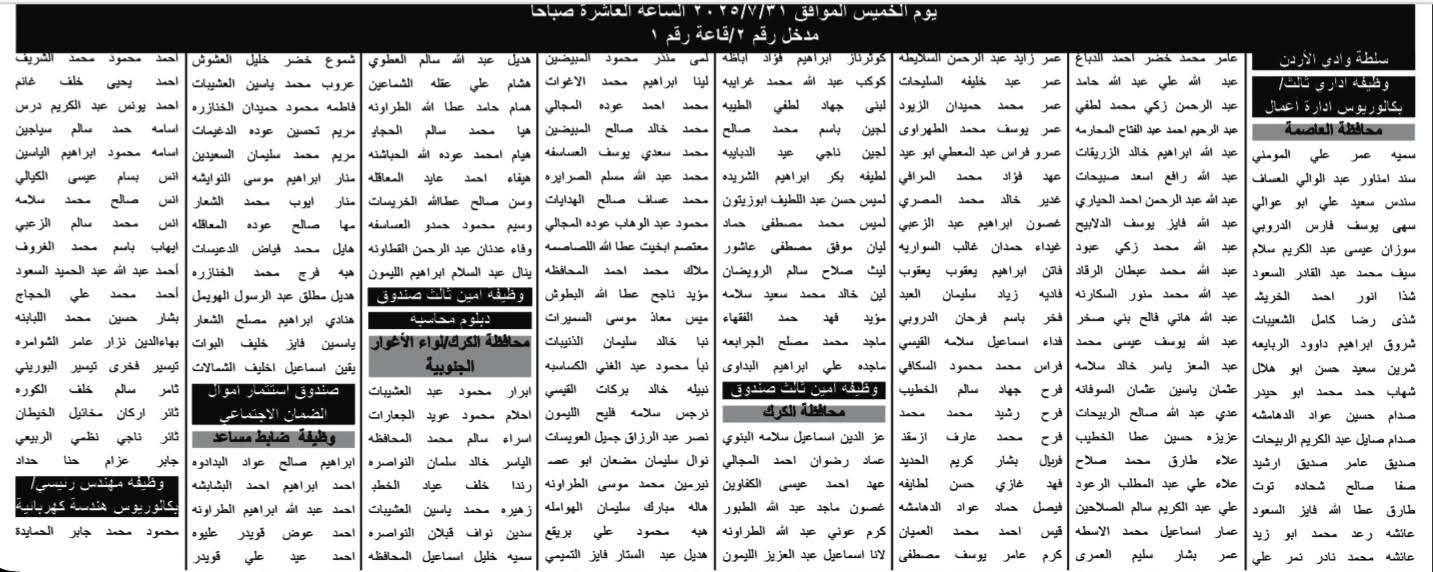 يوم الخميس الموافق ٢٠٢٥/٧/٣١ الساعة العاشرة صباحا
مدخل رقم ٢/قاعة رقم ١
سلطة وادي الأردن
وظيفه اداري ثالث/
بكالوريوس ادارة اعمال
محافظة العاصمة
سميه عمر علي المومني
سند امناور عبد الوالي العساف
سندس سعيد علي ابو عوالي
سهى يوسف فارس الدروبي
سوزان عيسى عبد الكريم سلام
سيف محمد عبد القادر السعود
شذا انور احمد الخريشه
شذى رضا كامل الشعيبات
شروق ابراهيم داوود الربايعه
شرين سعيد حسن ابو هلال
شهاب حمد محمد ابو حيدر
صدام حسين عواد الدهامشه
صدام صايل عبد الكريم الربيحات
صديق عامر صديق ارشيد
صفا صالح شحاده توت
طارق عطا الله فايز السعود
عائشه رعد محمد ابو زيد
عائشه محمد نادر نمر علي
عامر محمد خضر احمد الدباغ
عبد الله علي عبد الله حامد
عبد الرحمن زكي محمد لطفي
عبد الرحيم احمد عبد الفتاح المحارمه
عبد الله ابراهيم خالد الزريقات
عبد الله رافع اسعد صبيحات
عبد الله عبد الرحمن احمد الحياري
عبد الله فايز يوسف الدلابيح
عبد الله محمد زكي عبود
عبد الله محمد عبطان الرقاد
عبد الله محمد منور السكارنه
عبد الله هاني فالح بني صخر
عبد الله يوسف عيسى محمد
عبد المعز ياسر خالد سلامه
عثمان ياسين عثمان السوفانه
عدي عبد الله صالح الربيحات
عزيزه حسين عطا الخطيب
علاء طارق محمد صلاح
علاء علي عبد المطلب الرعود
علي عبد الكريم سالم الصلاحين
عمار اسماعيل محمد الاسطه
عمر بشار سليم العمري
عمر زايد عبد الرحمن السلايطه
عمر عبد خليفه السليحات
عمر محمد حميدان الزيود
عمر يوسف محمد الطهراوى
عمرو فراس عبد المعطي ابو عيد
عهد فؤاد محمد المرافي
غدير خالد محمد المصري
غصون ابراهيم عبد الزعبي
غيداء حمدان غالب السواريه
فاتن ابراهيم يعقوب يعقوب
فاديه زياد سليمان العبد
فخر باسم فرحان الدروبي
فداء اسماعيل سلامه القيسي
فراس محمد محمود السكافي
فرح جهاد سالم الخطيب
فرح رشيد محمد محمد
فرح محمد عارف ازمقد
فريال بشار كريم الحديد
فهد غازي حسن لطايفه
فيصل حماد عواد الدهامشه
قيس احمد محمد العميان
كرم عامر يوسف مصطفى
كوثرناز ابراهيم فؤاد اباظه
كوكب عبد الله محمد غرايبه
لبنى جهاد لطفي الطيبه
لجين باسم محمد صالح
لجين ناجي عيد الدبايبه
لطيفه بكر ابراهيم الشريده
لميس حسن عبد اللطيف ابوزيتون
لميس محمد مصطفى حماد
ليان موفق مصطفى عاشور
ليث صلاح سالم الرويضان
لين خالد محمد سعيد سلامه
مؤيد فهد حمد الفقهاء
ماجد محمد مصلح الجرابعه
ماجده علي ابراهيم البداوى
وظيفه امين ثالث صندوق
محافظة الكرك
عز الدين اسماعيل سلامه البنوي
عماد رضوان احمد المجالي
عهد احمد عيسى الكفاوين
غصون ماجد عبد الله الطبور
كرم عوني عبد الله الطراونه
لانا اسماعيل عبد العزيز الليمون
لمى منذر محمود المبيضين
لينا ابراهيم محمد الاغوات
محمد احمد عوده المجالي
محمد خالد صالح المبيضين
محمد سعدي يوسف العساسفه
محمد عبد الله مسلم الصرايره
محمد عساف صالح الهدايات
محمود عبد الوهاب عوده المجالي
معتصم ابخيت عطا الله اللصاصمه
ملاك محمد احمد المحافظه
مؤيد ناجح عطا الله البطوش
ميس معاذ موسى السميرات
نبا خالد سليمان الذنيبات
نبأ محمود عبد الغني الكساسبه
نبيله خالد بركات القيسي
نرجس سلامه فليح الليمون
نصر عبد الرزاق جميل العويسات
نوال سليمان مضعان ابو عصـ
نيرمين محمد موسى الطراونه
هاله مبارك سليمان الهوامله
هبه محمود علي بريقع
هديل عبد الستار فايز التميمي
هديل عبد الله سالم العطوي
هشام علي عقله الشماعين
همام حامد عطا الله الطراونه
هيا محمد سالم الحجايا
هيام امحمد عوده الله الحباشنه
هيفاء احمد عايد المعاقله
وسن صالح عطاالله الخريسات
وسيم محمود حمدو العساسفه
وفاء عدنان عبد الرحمن القطاونه
ينال عبد السلام ابراهيم الليمون
وظيفه امين ثالث صندوق
دبلوم محاسبه
محافظة الكرك/لواء الأغوار
الجنوبية
ابرار محمود عبد العشيبات
احلام محمود عويد الجعارات
اسراء سالم محمد المحافظه
الياسر خالد سلمان النواصره
رندا خلف عياد الخطبا
زهيره محمد ياسين العشيبات
سدين نواف قبلان النواصره
سميه خليل اسماعيل المحافظه
شموع خضر خليل العشوش
عروب محمد ياسين العشيبات
فاطمه محمود حميدان الخنازره
مريم تحسين عوده الدغيمات
مريم محمد سليمان السعيدين
منار ابراهيم موسى النوايشه
منار ايوب محمد الشعار
مها صالح عوده المعاقله
هايل محمد فياض الدعيسات
هبه فرج محمد الخنازره
هديل مطلق عبد الرسول الهويمل
هنادي ابراهيم مصلح الشعار
ياسمين فايز خليف البوات
يقين اسماعيل اخليف الشمالات
صندوق استثمار اموال
الضمان الاجتماعي
وظيفة ضابط مساعد
ابراهيم صالح عواد البدادوه
احمد ابراهيم احمد البشابشه
احمد عبد الله ابراهيم الطراونه
احمد عوض قويدر عليوه
احمد عيد علي قويدر
احمد محمود محمد الشريف
احمد يحيى خلف غانم
احمد يونس عبد الكريم درس
اسامه حمد سالم سياجين
اسامه محمود ابراهيم الياسين
انس بسام عيسى الكيالي
انس صالح محمد سلامه
انس محمد سالم الزعبي
ايهاب باسم محمد الغروف
أحمد عبد الله عبد الحميد السعود
أحمد محمد علي الحجاج
بشار حسين محمد اللبابنه
بهاءالدين نزار عامر الشوامره
تيسير فخري تيسير البوريني
ثامر سالم خلف الكوره
ثائر اركان مخائيل الخيطان
ثائر ناجي نظمي الربيعي
جابر عزام حنا حداد
وظيفه مهندس رئيسي/
بكالوريوس هندسة كهربائية
محمود محمد جابر الحمايدة